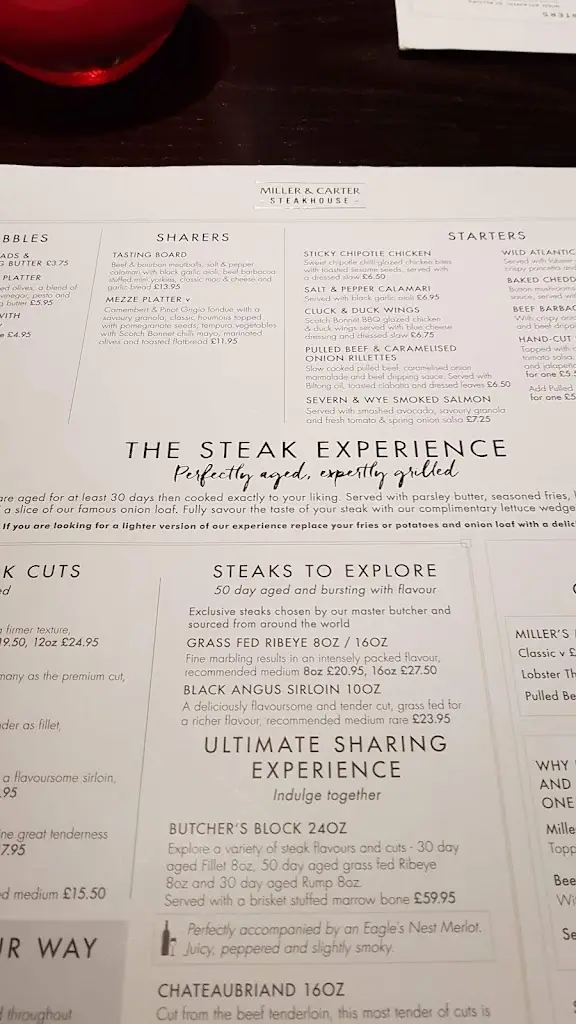 MILLER & CARTER
- STEAKHOUSE -
BBLES
ADS &
G BUTTER £3.75
PLATTER
ed olives, a blend of
vinegar, pesto and
g butter £5.95
WITH
e £4.95
SHARERS
TASTING BOARD
Beef & bourbon meatballs, salt & pepper
calamari with black garlic aioli, beef barbacoa
stuffed mini yorkies, classic mac & cheese and
garlic bread £13.95
MEZZE PLATTER v
Camembert & Pinot Grigio fondue with a
savoury granola, classic houmous topped
with pomegranate seeds, tempura vegetables
with Scotch Bonnet chilli mayo, marinated
olives and toasted flatbread £11.95
STARTERS
STICKY CHIPOTLE CHICKEN
Sweet chipotle chilli-glazed chicken bites
with toasted sesame seeds, served with
a dressed slaw £6.50
SALT & PEPPER CALAMARI
Served with black garlic aioli £6.95
CLUCK & DUCK WINGS
Scotch Bonnet BBQ glazed chicken
& duck wings served with blue cheese
dressing and chessed slaw £6.75
PULLED BEEF & CARAMELISED
ONION RILLETTES
Slow cooked pulled beef, caramelised onion
marmalade and beef dripping sauce. Served with
Biltong oil, toasted ciabatta and dressed leaves £6.50
SEVERN & WYE SMOKED SALMON
Served with smashed avocado, savoury granola
and fresh tomato & spring onion salsa £7.25
WILD ATLANTIC
Served with lobster
crispy pancetta and
BAKED CHEDD
Button mushrooms
sauce, served wi
BEEF BARBAC
With crispy
and beef dripp
HAND-CUT
Topped with
tomato salsa,
and jalapeño
for one £5.
Add Pulled
for one £5
THE STEAK EXPERIENCE
Perfectly aged, expertly grilled
are aged for at least 30 days then cooked exactly to your liking. Served with parsley butter, seasoned fries,
a slice of our famous onion loaf. Fully savour the taste of your steak with our complimentary lettuce wedge
If you are looking for a lighter version of our experience replace your fries or potatoes and onion loaf with a delic
K CUTS
ed
firmer texture,
19.50, 12oz £24.95
many as the premium cut,
der as fillet,
a flavoursome sirloin,
.95
ine great tenderness
7.95
ed medium £15.50
UR WAY
d throughout
STEAKS TO EXPLORE
50 day aged and bursting with flavour
Exclusive steaks chosen by our master butcher and
sourced from around the world
GRASS FED RIBEYE 8OZ / 16OZ
Fine marbling results in an intensely packed flavour,
recommended medium 8oz £20.95, 16oz £27.50
BLACK ANGUS SIRLOIN 10OZ
A deliciously flavoursome and tender cut, grass fed for
a richer flavour, recommended medium rare £23.95
ULTIMATE SHARING
EXPERIENCE
Indulge together
BUTCHER'S BLOCK 24OZ
Explore a variety of steak flavours and cuts - 30 day
aged Fillet 8oz, 50 day aged grass fed Ribeye
8oz and 30 day aged Rump 8oz.
Served with a brisket stuffed marrow bone £59.95
Perfectly accompanied by an Eagle's Nest Merlot.
Juicy, peppered and slightly smoky.
CHATEAUBRIAND 16OZ
Cut from the beef tenderloin, this most tender of cuts is
MILLER'S
Classic v £
Lobster Th
Pulled Be
WHY
AND
ONE
Mille
Topp
Bee
Wi
Se